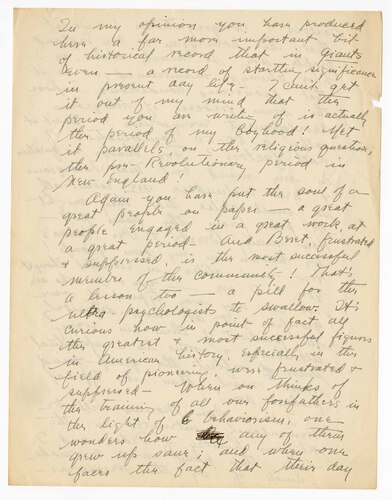 In my opinion you have produced
here a far more important bit
of historical record that in Giants
even — a record of startling significance
in present day life. I can't get
it out of my mind that the
period you are writing of is actually
the period of my boyhood! Yet
it parallels, on the religious question,
the pre-Revolutionary period in
New England.
Again you have put the soul of a
great people on paper — a great
people engaged in a great work, at
a great period — And Beret, frustrated
& suppressed is the most successful
member of the community! That's
a lesson too — a pill for the
ultra psychologists to swallow. It's
curious how in point of fact all
the greatest & most successful figures
in American history, especially in the
field of pioneering, were frustrated &
suppressed — When on thinks of
the training of all our forefathers in
the light of behaviorism, one
wonders how any of them
grew up sane; and when one
faces the fact that their day